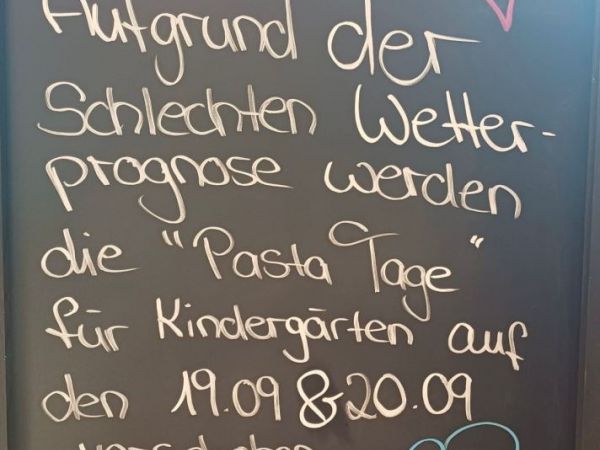 Aufgrund der
Schlechten Wetter-
prognose werden
die "Pasta Tage"
für Kindergärten auf
den 19.09 & 20.09
verschoben